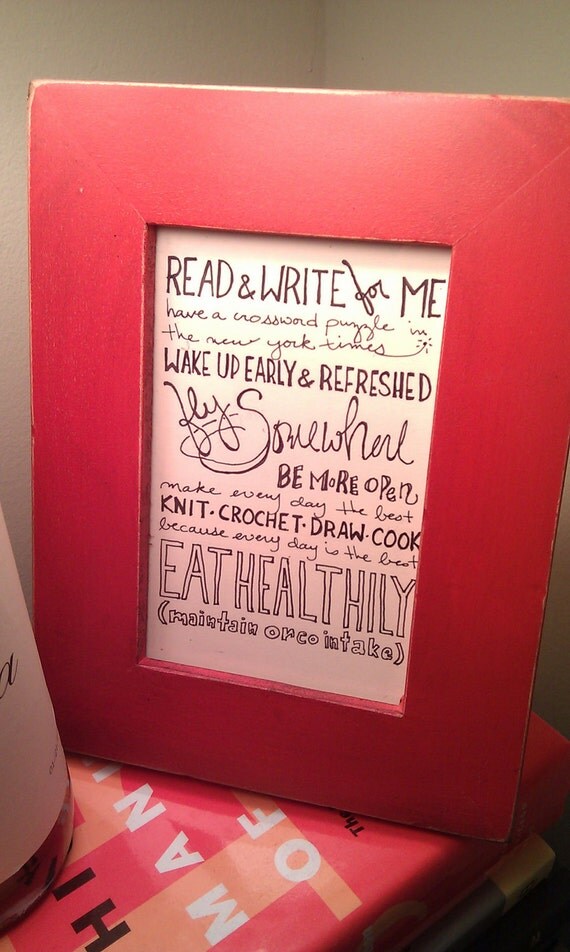 READ & WRITE for ME
have a crossword puzzle in
the new york times
WAKE UP EARLY & REFRESHED
fly Somewhere
BE MORE OPEN
make every day the best
KNIT · CROCHET · DRAW · COOK
because every day is the best
EAT HEALTHILY
(maintain oreo intake)
a
HI
MAN
OF
The